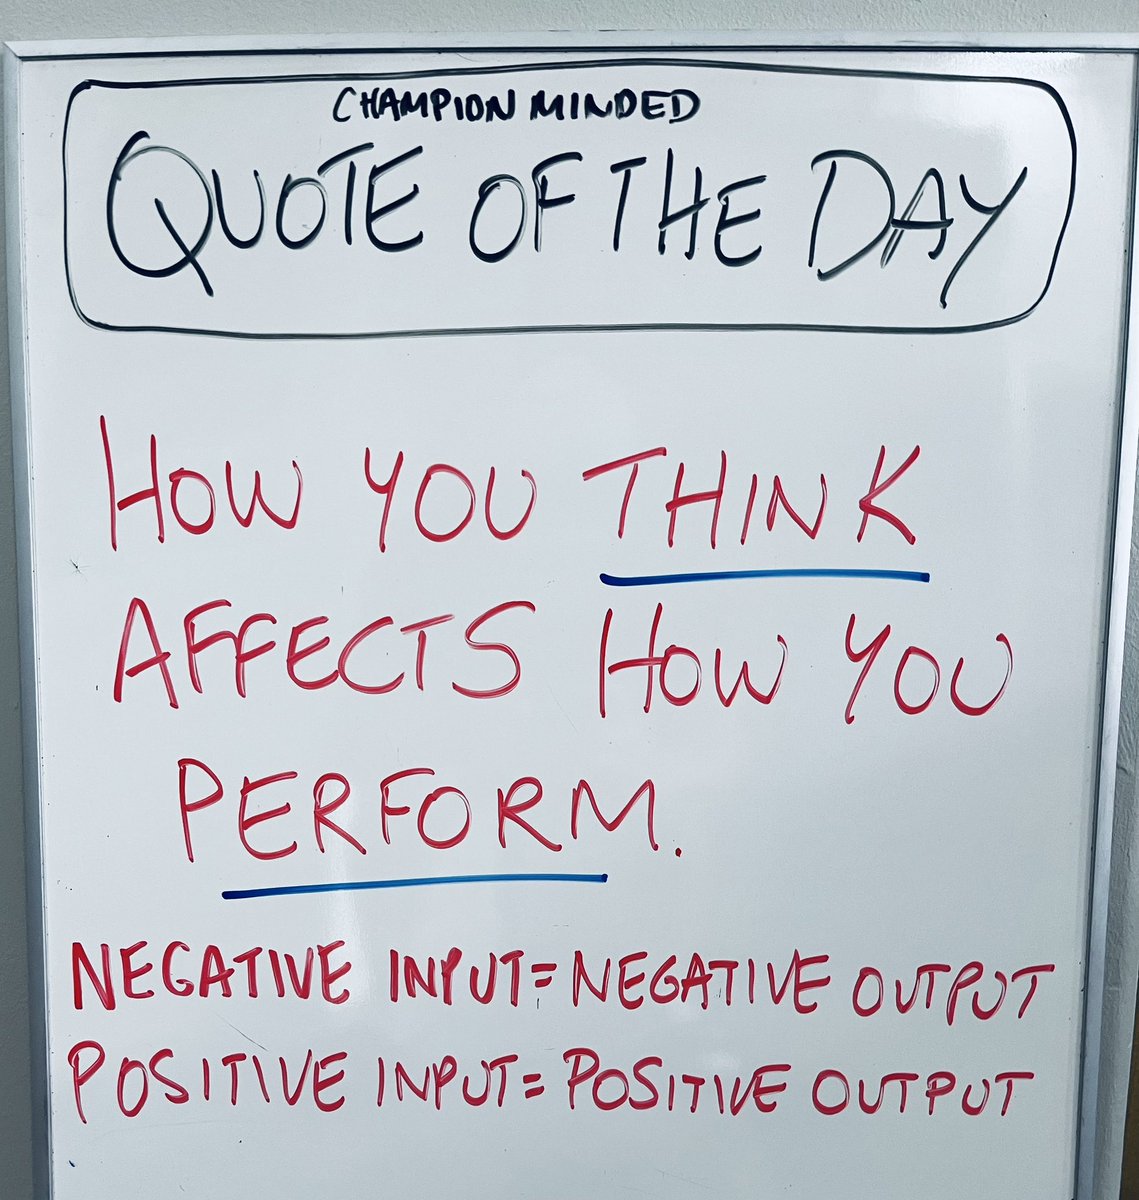 CHAMPION MINDED
QUOTE OF THE DAY
HOW YOU THINK
AFFECTS HOW YOU
PERFORM.
NEGATIVE INPUT = NEGATIVE OUTPUT
POSITIVE INPUT = POSITIVE OUTPUT